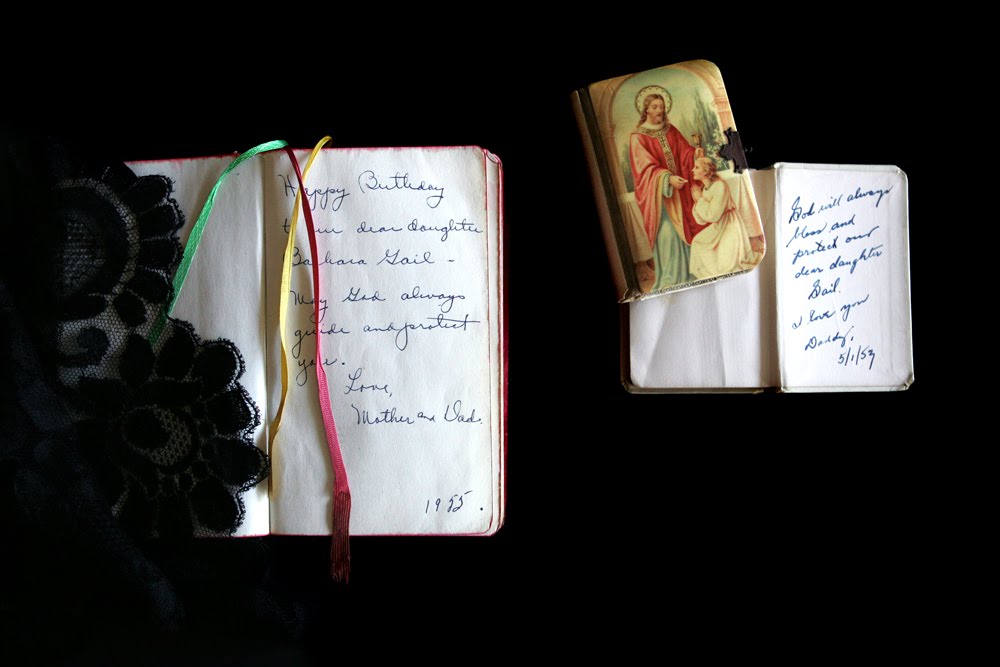 Happy Birthday
to our dear daughter
Barbara Gail -
May God always
guide and protect
you.
Love,
Mother and Dad.
1955.
God will always
bless and
protect our
dear daughter
Gail.
I love you
Daddy.
5/1/53